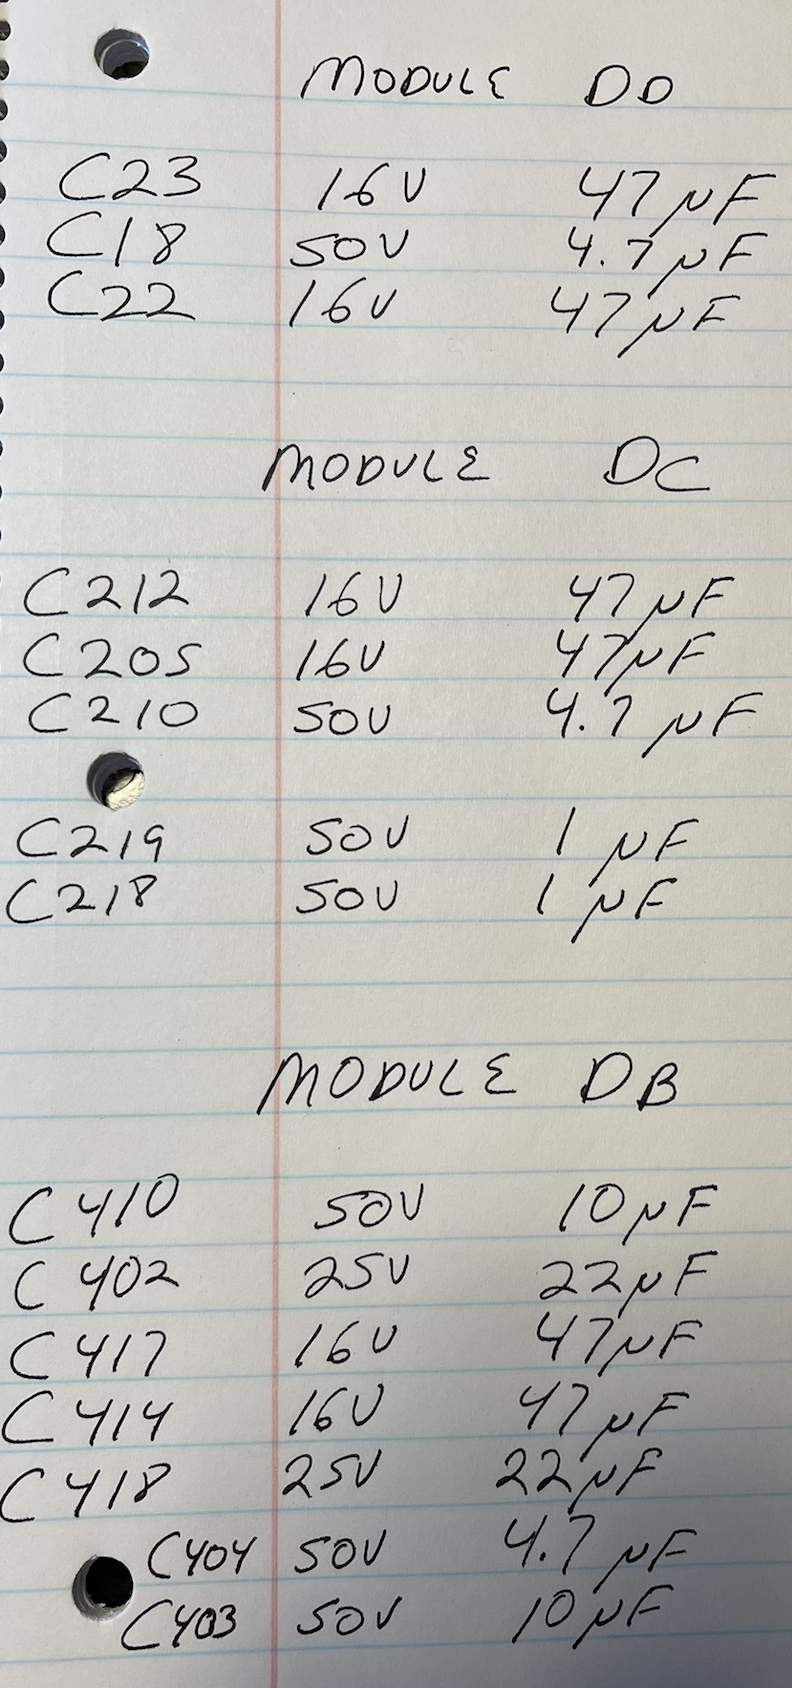 MODULE DD
C23 16V 47µF
C18 50V 4.7µF
C22 16V 47µF
MODULE DC
C212 16V 47µF
C205 16V 47µF
C210 50V 4.7µF
C219 50V 1µF
C218 50V 1µF
MODULE DB
C410 50V 10µF
C402 25V 22µF
C417 16V 47µF
C414 16V 47µF
C418 25V 22µF
C404 50V 4.7µF
C403 50V 10µF